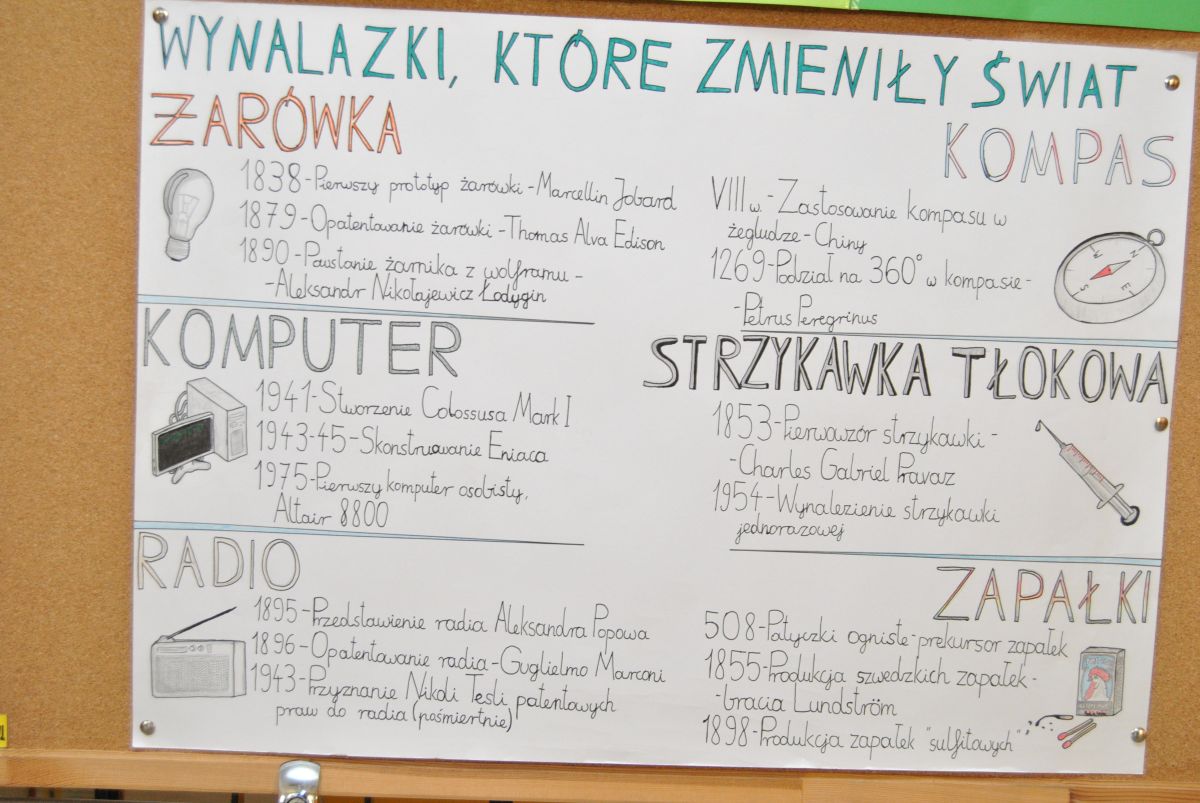 WYNALAZKI, KTÓRE ZMIENIŁY ŚWIAT
ŻARÓWKA
1838-Pierwszy prototyp żarówki-Marcellin Jobard
1879-Opatentowanie żarówki-Thomas Alva Edison
1890-Powstanie żarnika z wolframu -
-Aleksandr Nikołajewicz Łodygin
KOMPAS
VIII w.-Zastosowanie kompasu w
żegludze-Chiny
1269-Podział na 360° w kompasie-
-Petrus Peregrinus
N
E
S
W
KOMPUTER
1941-Stworzenie Colossusa Mark I
1943-45-Skonstruowanie Eniaca
1975-Pierwszy komputer osobisty,
Altair 8800
STRZYKAWKA TŁOKOWA
1853-Pierwowzór strzykawki-
-Charles Gabriel Pravaz
1954-Wynalezienie strzykawki
jednorazowej
RADIO
1895-Przedstawienie radia Aleksandra Popowa
1896-Opatentowanie radia-Guglielmo Marconi
1943-Przyznanie Nikoli Tesli patentowych
praw do radia (pośmiertnie)
ZAPAŁKI
508-Patyczki ogniste-prekursor zapałek
1855-Produkcja szwedzkich zapałek-
-Gracia Lundström
1898-Produkcja zapałek "sulfitowych"